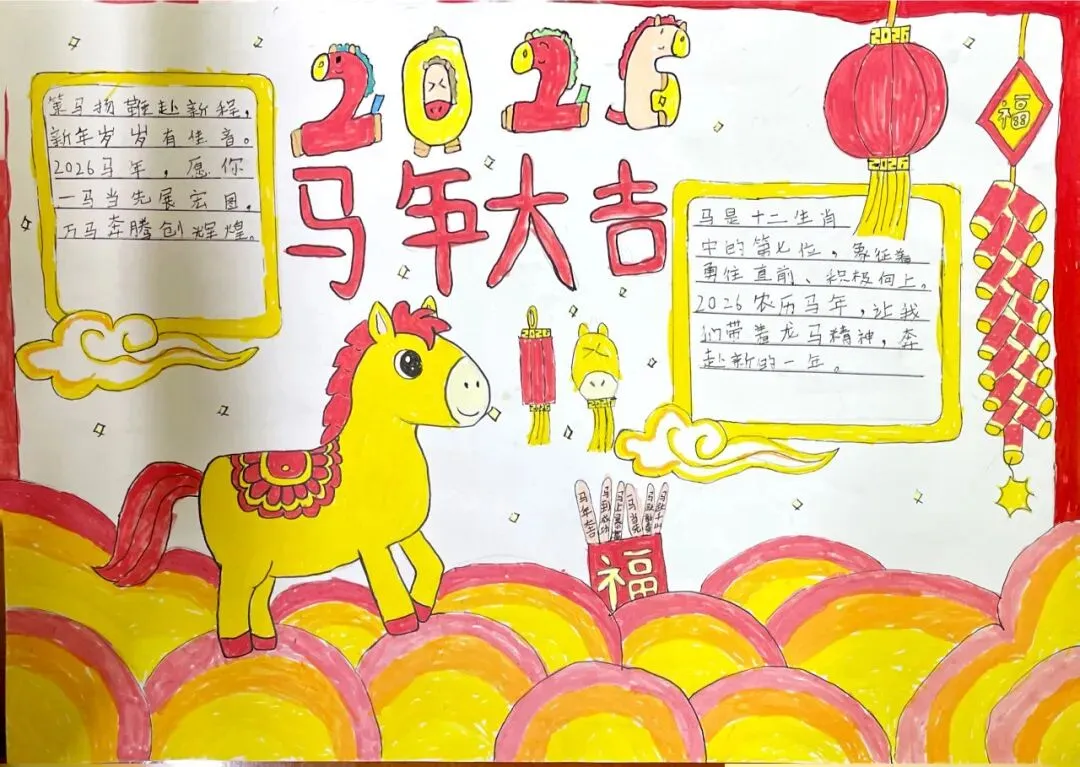 2026
马年大吉
策马扬鞭赴新程，
新年岁岁有佳音。
2026马年，愿你
一马当先展宏图，
万马奔腾创辉煌。
2026
2026
福
马是十二生肖
中的第七位，象征着
勇往直前、积极向上。
2026农历马年，让我
们带着龙马精神，奔
赴新的一年。
2026
马年大吉
马到成功
福